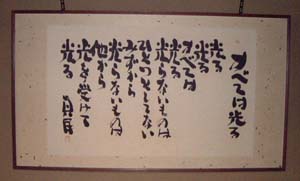 すべては光る
光る
光る
すべては
光る
光らないものは
ひとつとしてない
みずから
光らないものは
他から
光を受けて
光る
真民